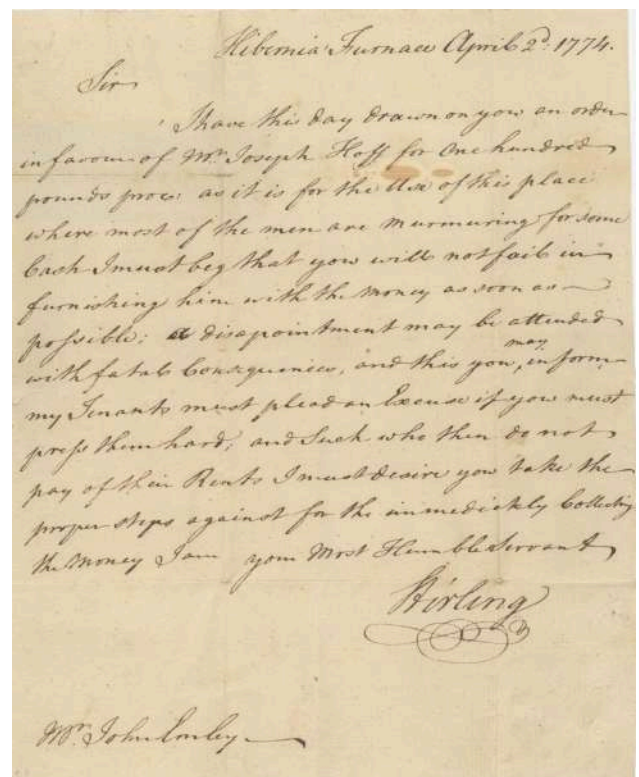 Hibernia Furnace April 2d. 1774.
Sir
I have this day drawn on you an order
in favour of Mr. Joseph Hoff for One hundred
pounds proc: as it is for the Use of this place
where most of the men are murmuring for some
Cash I must beg that you will not fail in
furnishing him with the money as soon as
possible; a disapointment may be attended
with fatal Consequences, and this you may inform
my Tenants must plead an Excuse if you must
press them hard; and Such who then do not
pay of their Rents I must desire you take the
proper steps against for the immediately Collecting
the Money I am your Most Humble Servant
Stirling
Mr. John Emley